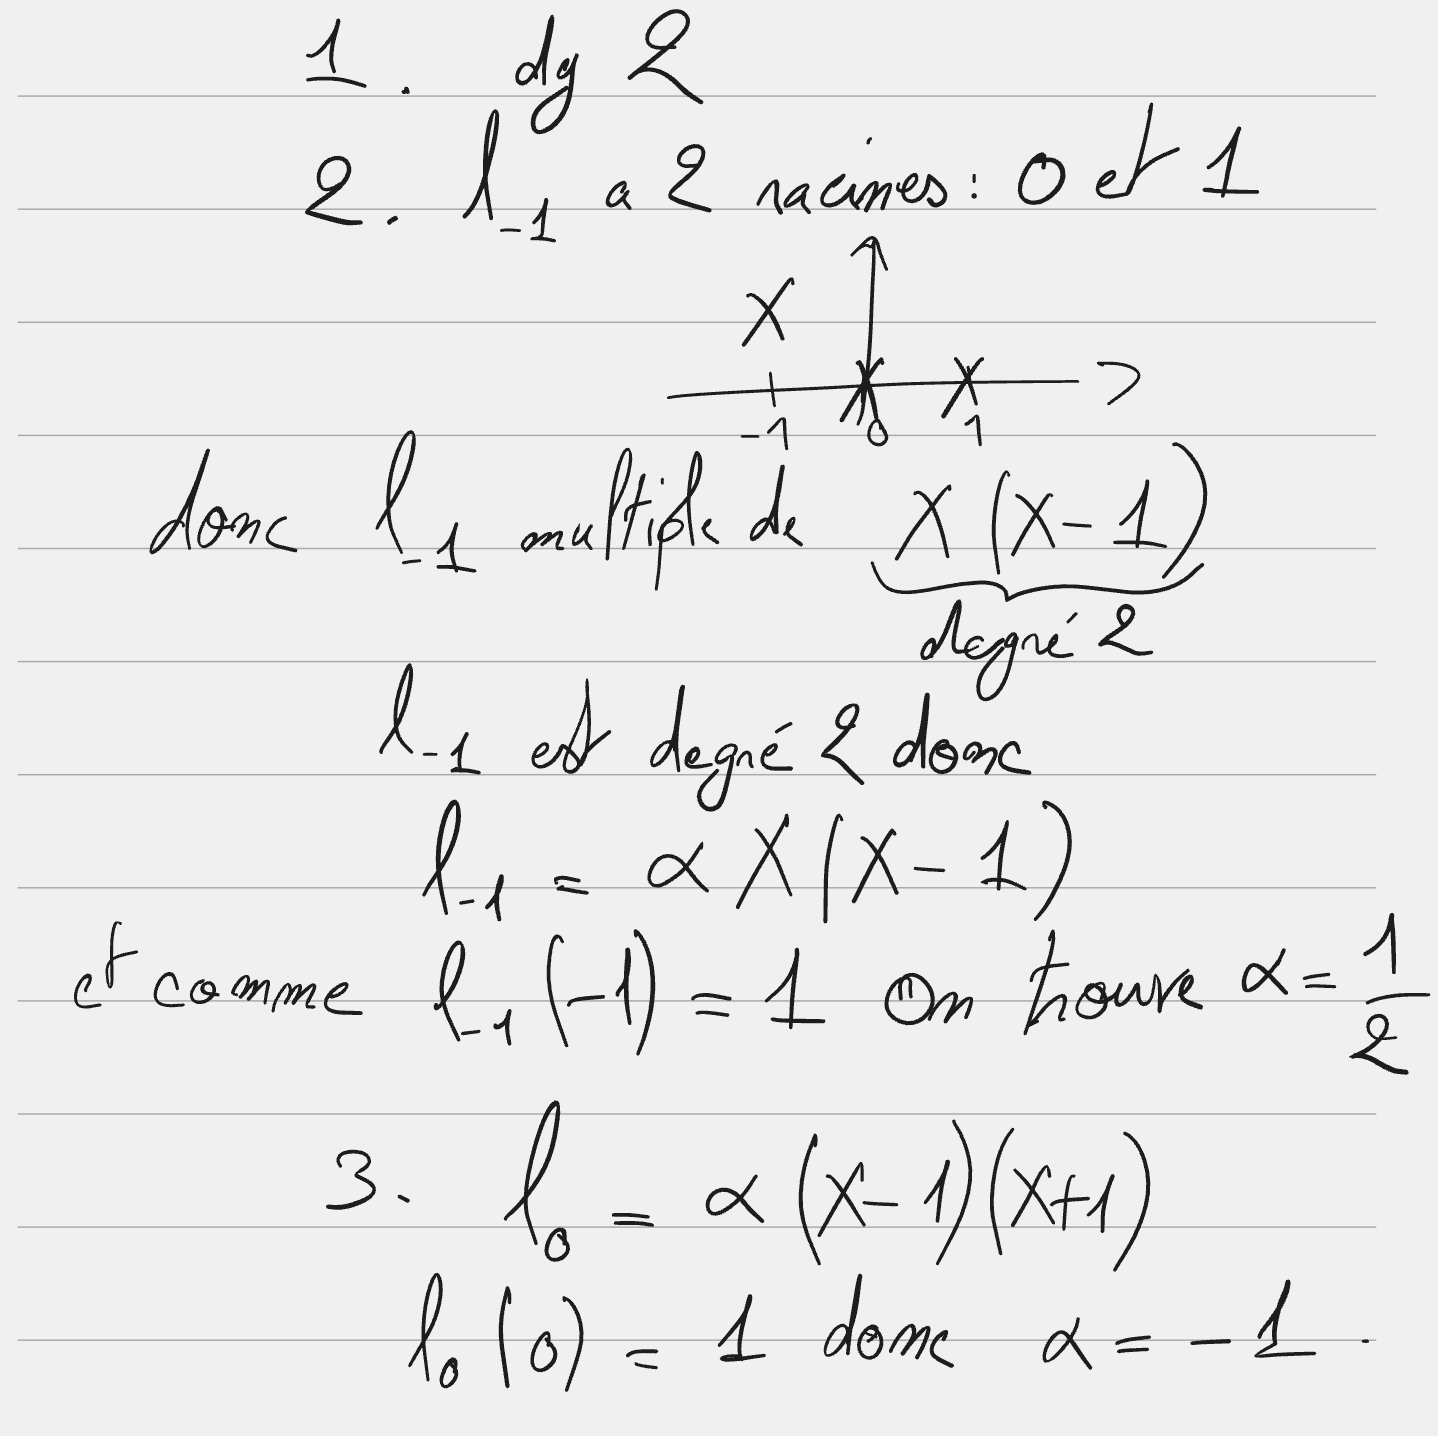 1. dg 2
2. l_{-1} a 2 racines : 0 et 1
-1 0 1
donc l_{-1} multiple de X(X-1)
degré 2
l_{-1} est degré 2 donc
l_{-1} = α X(X-1)
et comme l_{-1}(-1) = 1 On trouve α = 1/2
3. l_0 = α (X-1)(X+1)
l_0(0) = 1 donc α = -1.